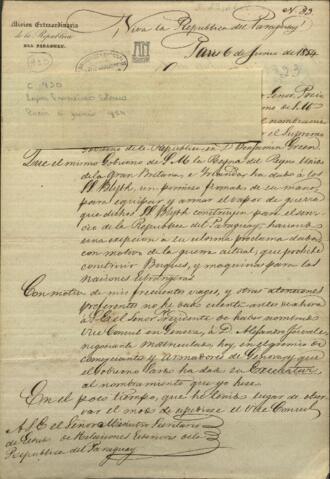 Nº 23
Mision Extraordinaria
de la República
DEL PARAGUAY.
¡Viva la República del Paraguay!
Paris 6 de Junio de 1854
323
C 430
Lopez Francisco Solano
Paris 6 junio 954
Gobierno de la Republica en D. Benjamin Green.
Que el mismo Gobierno de S. M. la Reyna del Reyno Unido
de la Gran Bretaña, e Irlanda ha dado á los
SS Blyth, un permiso firmado de su mano
para equipar y armar el vapor de guerra
que dichos SS Blyth construyen para el servi-
cio de la Republica del Paraguay, haciendo
una esepcion a su ultima proclama dada
con motivo de la guerra actual, que prohibe
construir Buques, y maquinas para las
Naciones Estrangeras.
Con motivo de mis frecuentes viages, y otras atenciones
preferentes no he dado cuenta antes de ahora
á S. E. el Señor Presidente de haber nombrado
Vice Consul en Genova, á D. Alejandro
negociante Matriculado, hoy en el gremio de
comerciantes y armadores de Genova y que
el Gobierno Sardo ha dado su Execuatur
al nombramiento que yo hise.
En el poco tiempo, que he tenido lugar de obser-
var el modo de el Vice Consul
A S. E. el Señor Ministro Secretario
de Estado de Relaciones Esteriores de la
Republica del Paraguay